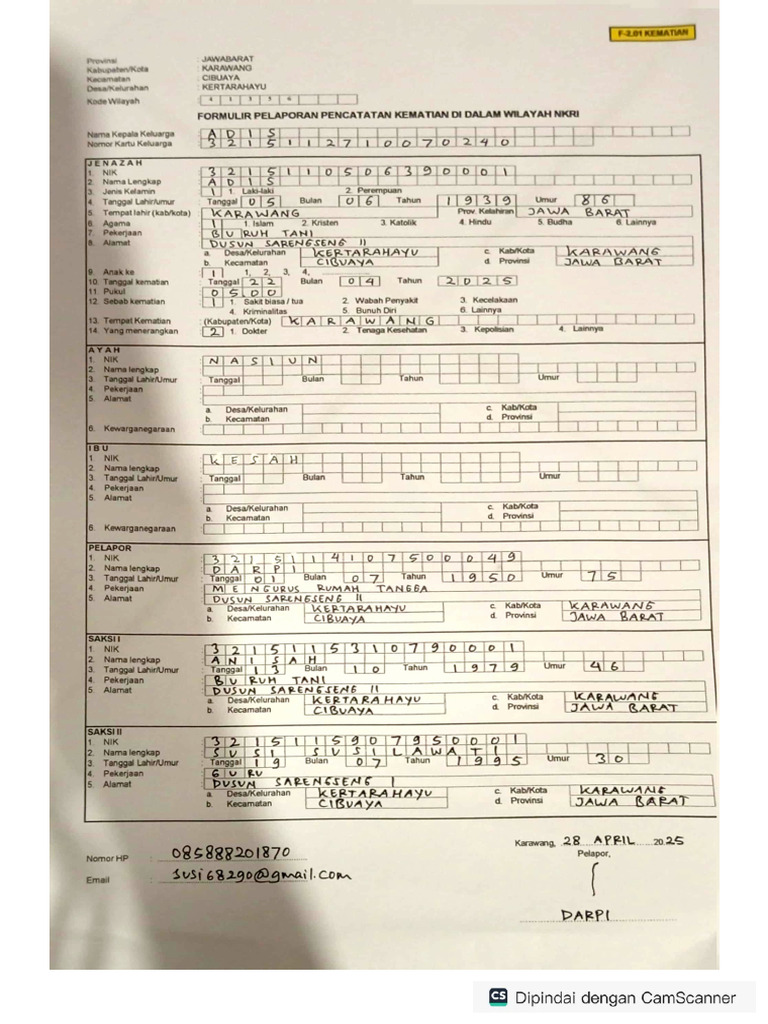 F-2.01 KEMATIAN
Provinsi : JAWABARAT
Kabupaten/Kota : KARAWANG
Kecamatan : CIBUAYA
Desa/Kelurahan : KERTARAHAYU
Kode Wilayah :
FORMULIR PELAPORAN PENCATATAN KEMATIAN DI DALAM WILAYAH NKRI
Nama Kepala Keluarga : ADIS
Nomor Kartu Keluarga : 3215112710070240
JENAZAH
1. NIK : 3215110506390001
2. Nama Lengkap : ADIS
3. Jenis Kelamin : 1 1. Laki-laki 2. Perempuan
4. Tanggal Lahir/umur : Tanggal 05 Bulan 06 Tahun 1939 Umur 86
5. Tempat lahir (kab/kota) : KARAWANG Prov. Kelahiran JAWA BARAT
6. Agama : 1 1. Islam 2. Kristen 3. Katolik 4. Hindu 5. Budha 6. Lainnya
7. Pekerjaan : BURUH TANI
8. Alamat : DUSUN SARENGSENG II
a. Desa/Kelurahan KERTARAHAYU c. Kab/Kota KARAWANG
b. Kecamatan CIBUAYA d. Provinsi JAWA BARAT
9. Anak ke : 1 1, 2, 3, 4,
10. Tanggal kematian : Tanggal 22 Bulan 04 Tahun 2025
11. Pukul : 0500
12. Sebab kematian : 1 1. Sakit biasa / tua 2. Wabah Penyakit 3. Kecelakaan
4. Kriminalitas 5. Bunuh Diri 6. Lainnya
13. Tempat Kematian : (Kabupaten/Kota) KARAWANG
14. Yang menerangkan : 2 1. Dokter 2. Tenaga Kesehatan 3. Kepolisian 4. Lainnya
AYAH
1. NIK : NASIUN
2. Nama lengkap
3. Tanggal Lahir/Umur : Tanggal Bulan Tahun Umur
4. Pekerjaan
5. Alamat
a. Desa/Kelurahan c. Kab/Kota
b. Kecamatan d. Provinsi
6. Kewarganegaraan
IBU
1. NIK : KESAH
2. Nama lengkap
3. Tanggal Lahir/Umur : Tanggal Bulan Tahun Umur
4. Pekerjaan
5. Alamat
a. Desa/Kelurahan c. Kab/Kota
b. Kecamatan d. Provinsi
6. Kewarganegaraan
PELAPOR
1. NIK : 3215114107500049
2. Nama lengkap : DARPI
3. Tanggal Lahir/Umur : Tanggal 01 Bulan 07 Tahun 1950 Umur 75
4. Pekerjaan : MENGURUS RUMAH TANGGA
5. Alamat : DUSUN SARENGSENG II
a. Desa/Kelurahan KERTARAHAYU c. Kab/Kota KARAWANG
b. Kecamatan CIBUAYA d. Provinsi JAWA BARAT
SAKSI I
1. NIK : 3215115310790001
2. Nama lengkap : ANISAH
3. Tanggal Lahir/Umur : Tanggal 13 Bulan 10 Tahun 1979 Umur 46
4. Pekerjaan : BURUH TANI
5. Alamat : DUSUN SARENGSENG II
a. Desa/Kelurahan KERTARAHAYU c. Kab/Kota KARAWANG
b. Kecamatan CIBUAYA d. Provinsi JAWA BARAT
SAKSI II
1. NIK : 3215115907950001
2. Nama lengkap : SUSI SUSILAWATI
3. Tanggal Lahir/Umur : Tanggal 19 Bulan 07 Tahun 1995 Umur 30
4. Pekerjaan : GURU
5. Alamat : DUSUN SARENGSENG I
a. Desa/Kelurahan KERTARAHAYU c. Kab/Kota KARAWANG
b. Kecamatan CIBUAYA d. Provinsi JAWA BARAT
Karawang, 28 APRIL 2025
Nomor HP : 085888201870
Pelapor,
Email : susi68290@gmail.com
DARPI
CS Dipindai dengan CamScanner